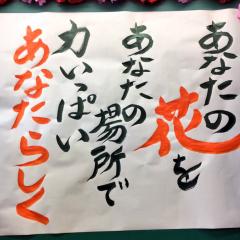 あなたの
花を
あなたの
場所で
力いっぱい
あなたらしく